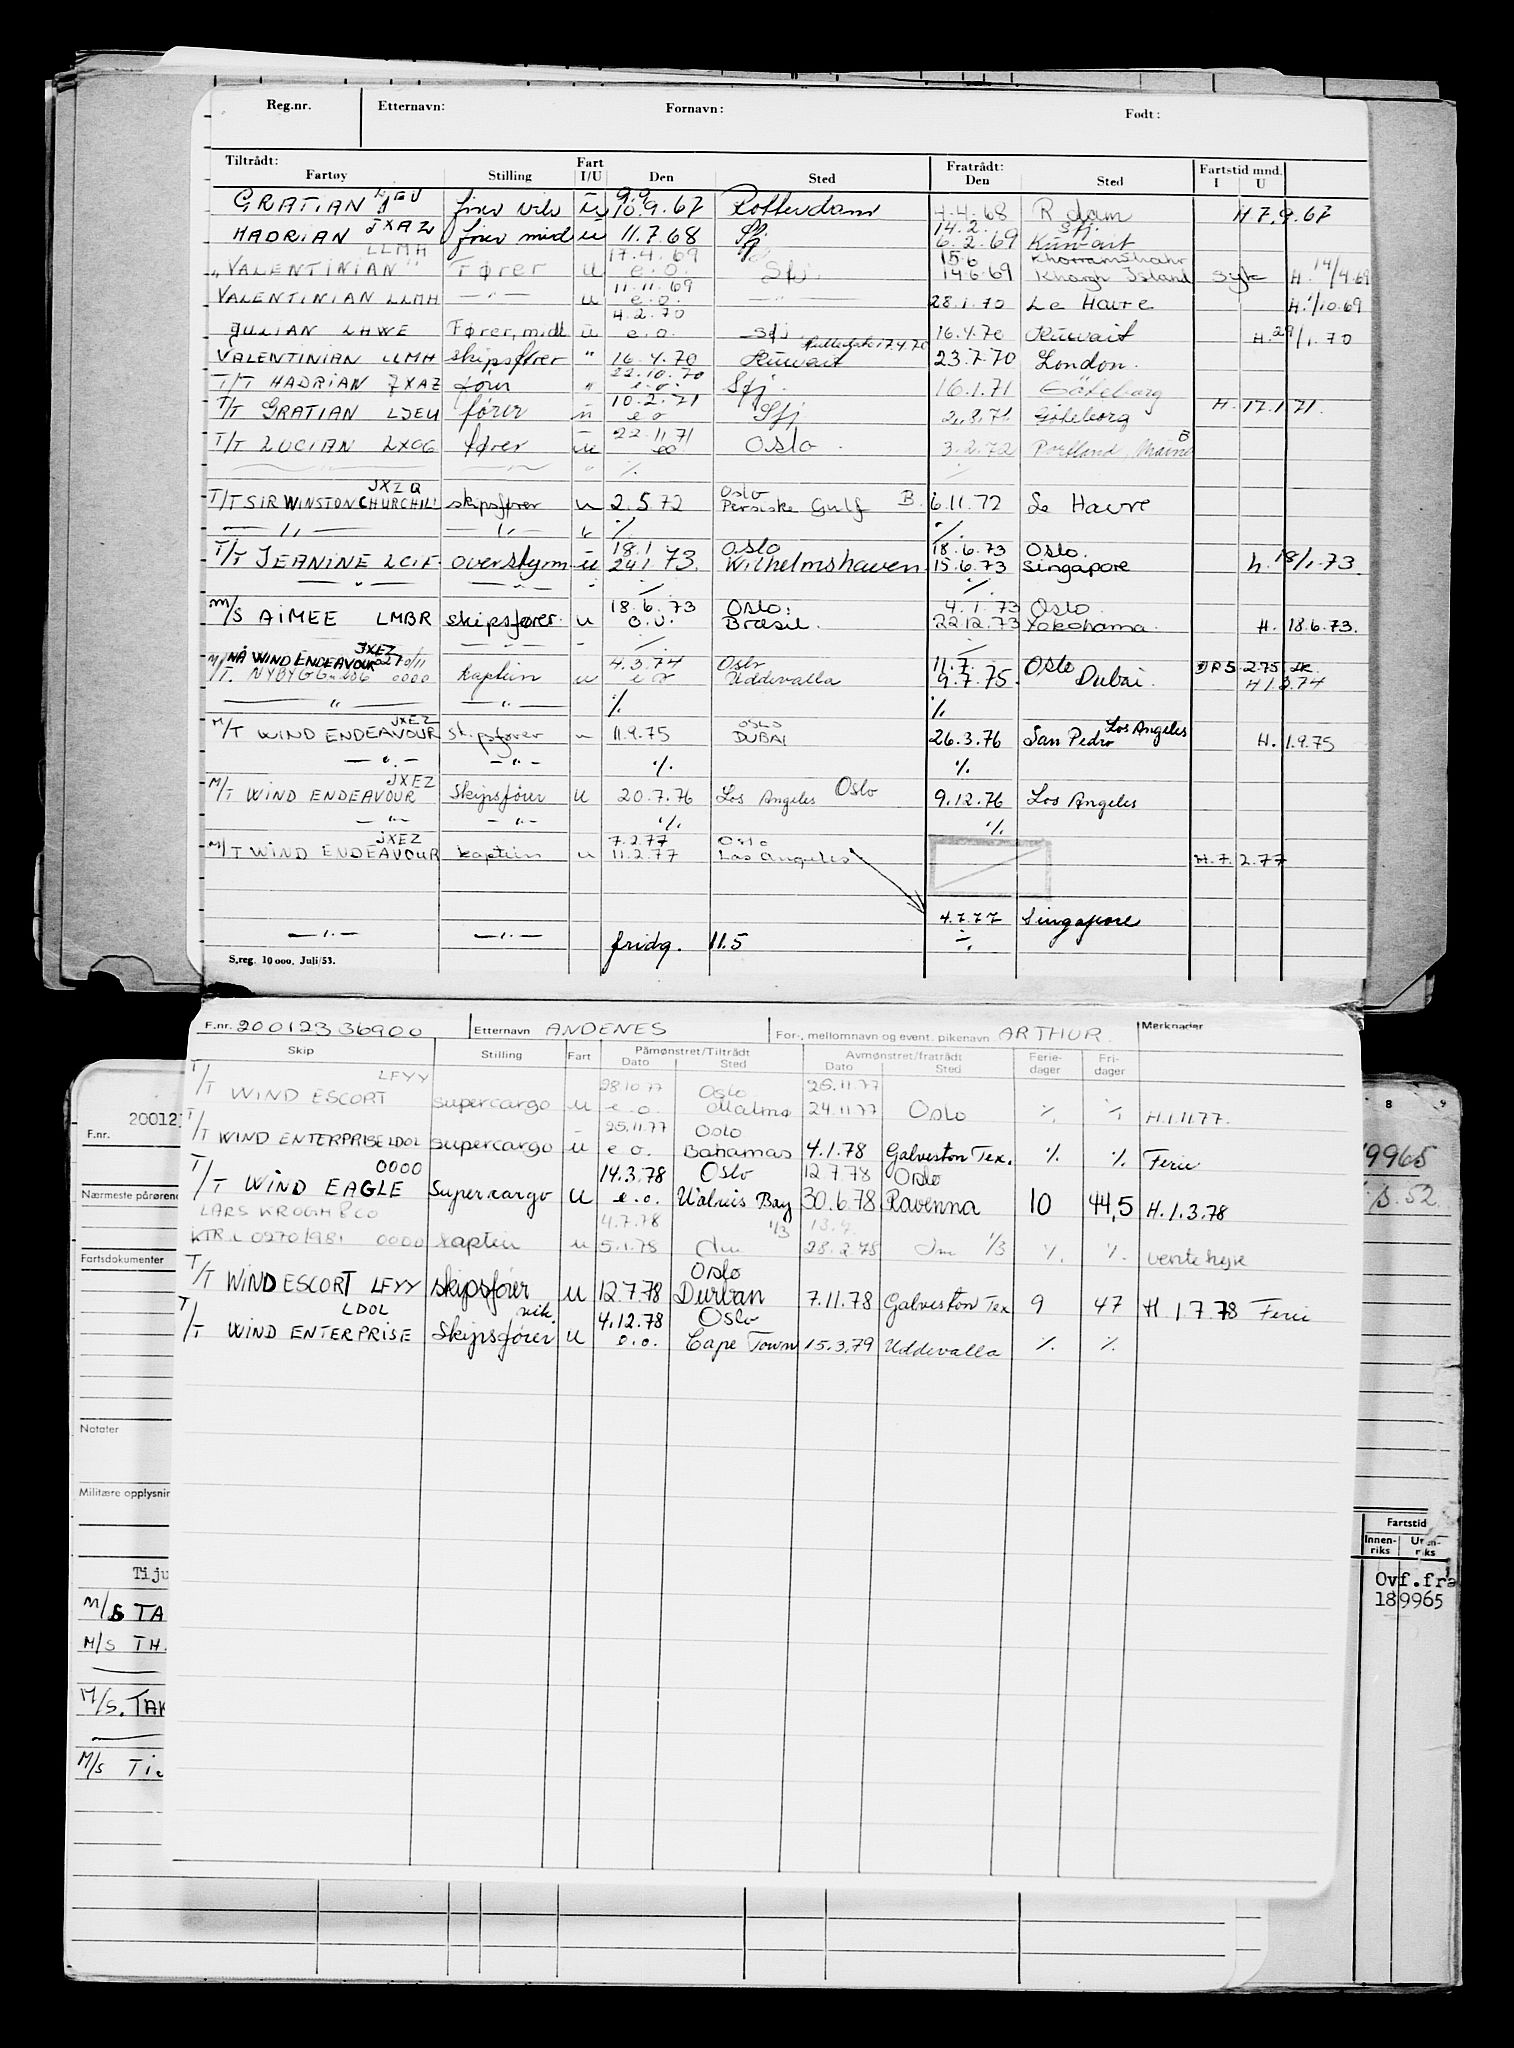 Reg.nr. Etternavn: Fornavn: Født:
Tiltrådt: Fart Fratrådt: Fartstid mnd.
Fartøy Stilling I/U Den Sted Den Sted I U
GRATIAN fører vik u 10.9.67 Rotterdam 4.4.68 R dam H 7.9.67
JXAZ 14.2. Sfj.
HADRIAN fører midl u 11.7.68 Sfj. 6.2.69 Kuwait
LLMH 17.4.69 15.6 Khorramshahr
"VALENTINIAN" Fører u e.o. Sfj. 14.6.69 Khargh Island Syk H. 14/4.69
11.11.69
VALENTINIAN LLMH —"— u e.o. —"— 28.1.70 Le Havre H. 1/10.69
4.2.70
JULIAN LHWE Fører, midl u e.o. Sfj. 16.4.70 Kuwait H. 29/1.70
VALENTINIAN LLMH skipsfører " 16.4.70 Kuwait 23.7.70 London.
22.10.70
T/T HADRIAN JXAZ fører " e.o. Sfj. 16.1.71 Göteborg
10.2.71
T/T GRATIAN LJEU fører u e o Sfj 2.8.71 Göteborg H. 17.1.71.
22.11.71
T/T LUCIAN LXOG fører u eo Oslo. 3.2.72 Portland, Maine
JXZQ Oslo
T/T SIR WINSTON CHURCHILL skipsfører u 2.5.72 Persiske Gulf B. 6.11.72 Le Havre
—"— —"— " % %
18.1 Oslo 18.6.73 Oslo.
T/T JEANINE LCIF overstyrm u 24.1.73. Wilhelmshaven 15.6.73 Singapore h. 18/1.73.
—"— —"— % %
18.6.73 Oslo: 4.1.73 Oslo
M/S AIMEE LMBR skipsfører. u o.v. Brasil. 22.12.73 Yokohama. H. 18.6.73.
JXEZ
NÅ WIND ENDEAVOUR 4.3.74 Oslo 11.7. Oslo
M/T. NYBYGG 0000 kaptein u e o Uddevalla 9.7.75. Dubai. H 1.3.74
—"— —"— % %
JXEZ OSLO Los Angeles
M/T WIND ENDEAVOUR skipsfører u 11.9.75 DUBAI 26.3.76 San Pedro H. 1.9.75
—"— —"— % %
JXEZ
M/T WIND ENDEAVOUR Skipsfører u 20.7.76 Los Angeles Oslo 9.12.76 Los Angeles
—"— —"— % %
JXEZ 7.2.77 Oslo
M/T WIND ENDEAVOUR kaptein u 11.2.77 Los Angeles H.7.2.77
4.7.77 Singapore
—"— —"— fridg. 11.5 %
S.reg. 10 000. Juli/53.
F.nr. 200123 36900 Etternavn ANDENES For-, mellomnavn og event. pikenavn ARTHUR. Merknader
Skip Stilling Fart Påmønstret/Tiltrådt Avmønstret/fratrådt Ferie- Fri-
Dato Sted Dato Sted dager dager
LFYY 28.10.77 Oslo 25.11.77
T/T WIND ESCORT supercargo u e.o. Malmö 24.11.77 Oslo % % H.1.11.77.
25.11.77 Oslo
T/T WIND ENTERPRISE LDOL supercargo u e o. Bahamas 4.1.78 Galveston Tex. % % Ferie
0000 14.3.78 Oslo 12.7.78 Oslo
T/T WIND EAGLE Supercargo u e.o. Walvis Bay 30.6.78 Ravenna 10 44,5 H.1.3.78
LARS KROGH & CO 4.7.78 1/3
0270/981 0000 kaptein u 5.1.78 28.2.78 1/3 % % ventehyre
Oslo
T/T WIND ESCORT LFYY skipsfører u 12.7.78 Durban 7.11.78 Galveston Tex 9 47 H 1.7.78 Ferie
LDOL vik. 4.12.78 Oslo
T/T WIND ENTERPRISE Skipsfører u e.o. Cape Town 15.3.79 Uddevalla % %
20012
F.nr.
Nærmeste pårørend
Fartsdokumenter
Notater
Militære opplysnin
Tiju
M/S TA
M/S TH.
M/S. TAK
M/S TI
8 9
9965
52
Fartstid
Innen- Uten-
riks riks
Ovf.fra
189965